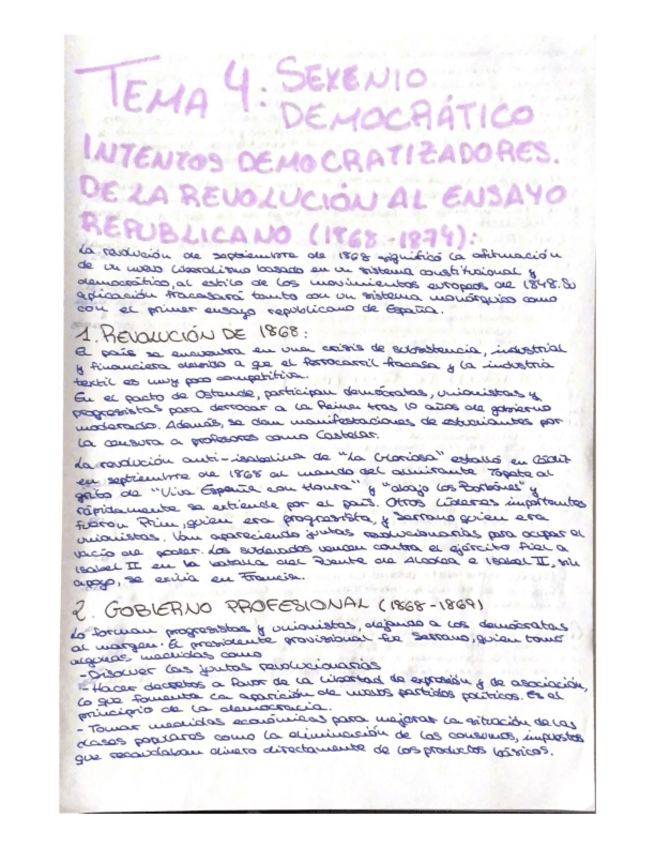 TEMA 4: SEXENIO
DEMOCRÁTICO
INTENTOS DEMOCRATIZADORES.
DE LA REVOLUCIÓN AL ENSAYO
REPUBLICANO (1868-1874):
La revolución de septiembre de 1868 significó la afirmación
de un nuevo liberalismo basado en un sistema constitucional y
democrático, al estilo de los movimientos europeos de 1848. Su
aplicación fracasará tanto con un sistema monárquico como
con el primer ensayo republicano de España.
1. REVOLUCIÓN DE 1868:
El país se encuentra en una crisis de subsistencia, industrial
y financiera debido a que el ferrocarril fracasa y la industria
textil es muy poco competitiva.
En el pacto de Ostende, participan demócratas, unionistas y
progresistas para derrocar a la Reina tras 10 años de gobierno
moderado. Además, se dan manifestaciones de estudiantes por
la censura a profesores como Castelar.
La revolución anti-isabelina de "La Gloriosa" estalló en Cádiz
en septiembre de 1868 al mando del almirante Topete al
grito de "Viva España con Honra" y "abajo los Borbones" y
rápidamente se extiende por el país. Otros líderes importantes
fueron Prim, quien era progresista, y Serrano quien era
unionistas. Van apareciendo juntas revolucionarias para ocupar el
vacío de poder. Los sublevados vencen contra el ejército fiel a
Isabel II en la batalla del Puente de Alcolea e Isabel II, sin
apoyo, se exilia en Francia.
2. GOBIERNO PROFESIONAL (1868-1869)
Lo forman progresistas y unionistas, dejando a los demócratas
al margen. El presidente provisional fue Serrano, quien tomó
algunas medidas como
- Disolver las juntas revolucionarias
- Hacer decretos a favor de la libertad de expresión y de asociación,
lo que fomenta la aparición de nuevos partidos políticos. Es el
principio de la democracia.
- Tomar medidas económicas para mejorar la situación de las
clases populares como la eliminación de los consumos, impuestos
que recaudaban dinero directamente de los productos básicos.